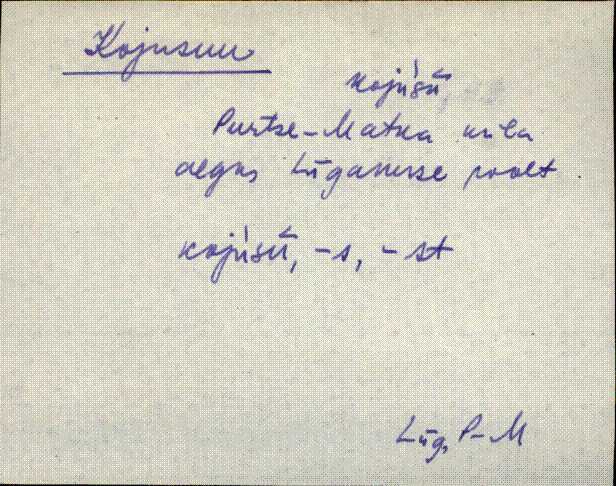 Kojusuu
koju̍sū̆
Purtse-Matka küla
algus Lüganuse poolt
koju̍sū̆, -s, -st
Lüg, P-M